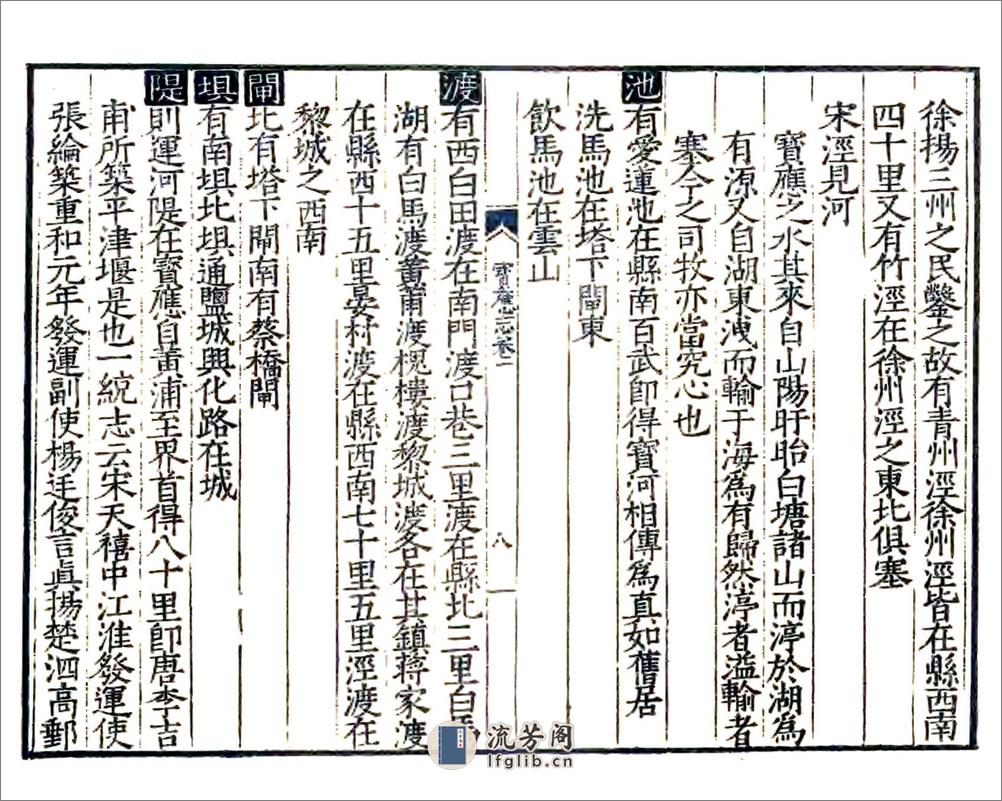 徐揚三州之民鑿之故有青州涇徐州涇皆在縣西南
四十里又有竹涇在徐州涇之東北俱塞
宋涇見河
寶應之水其來自山陽盱眙白塘諸山而渟於湖爲
有源又自湖東洩而輸于海爲有歸然渟者溢輸者
塞今之司牧亦當究心也
池有愛蓮池在縣南百武即得寶河相傳爲真如舊居
洗馬池在塔下閘東
飲馬池在雲山
寶應志卷二
八
渡有西白田渡在南門渡口巷三里渡在縣北三里白馬
湖有白馬渡黄莆渡槐樓渡黎城渡各在其鎮蒋家渡
在縣西十五里晏村渡在縣西南七十里五里涇渡在
黎城之西南
閘北有塔下閘南有蔡橋閘
垻有南垻北垻通鹽城興化路在城
隄則運河隄在寶應自黄浦至界首得八十里即唐李吉
甫所築平津堰是也一統志云宋天禧中江淮發運使
張綸築重和元年發運副使楊廷俊言眞揚楚泗高郵
流芳阁
lfglib.cn